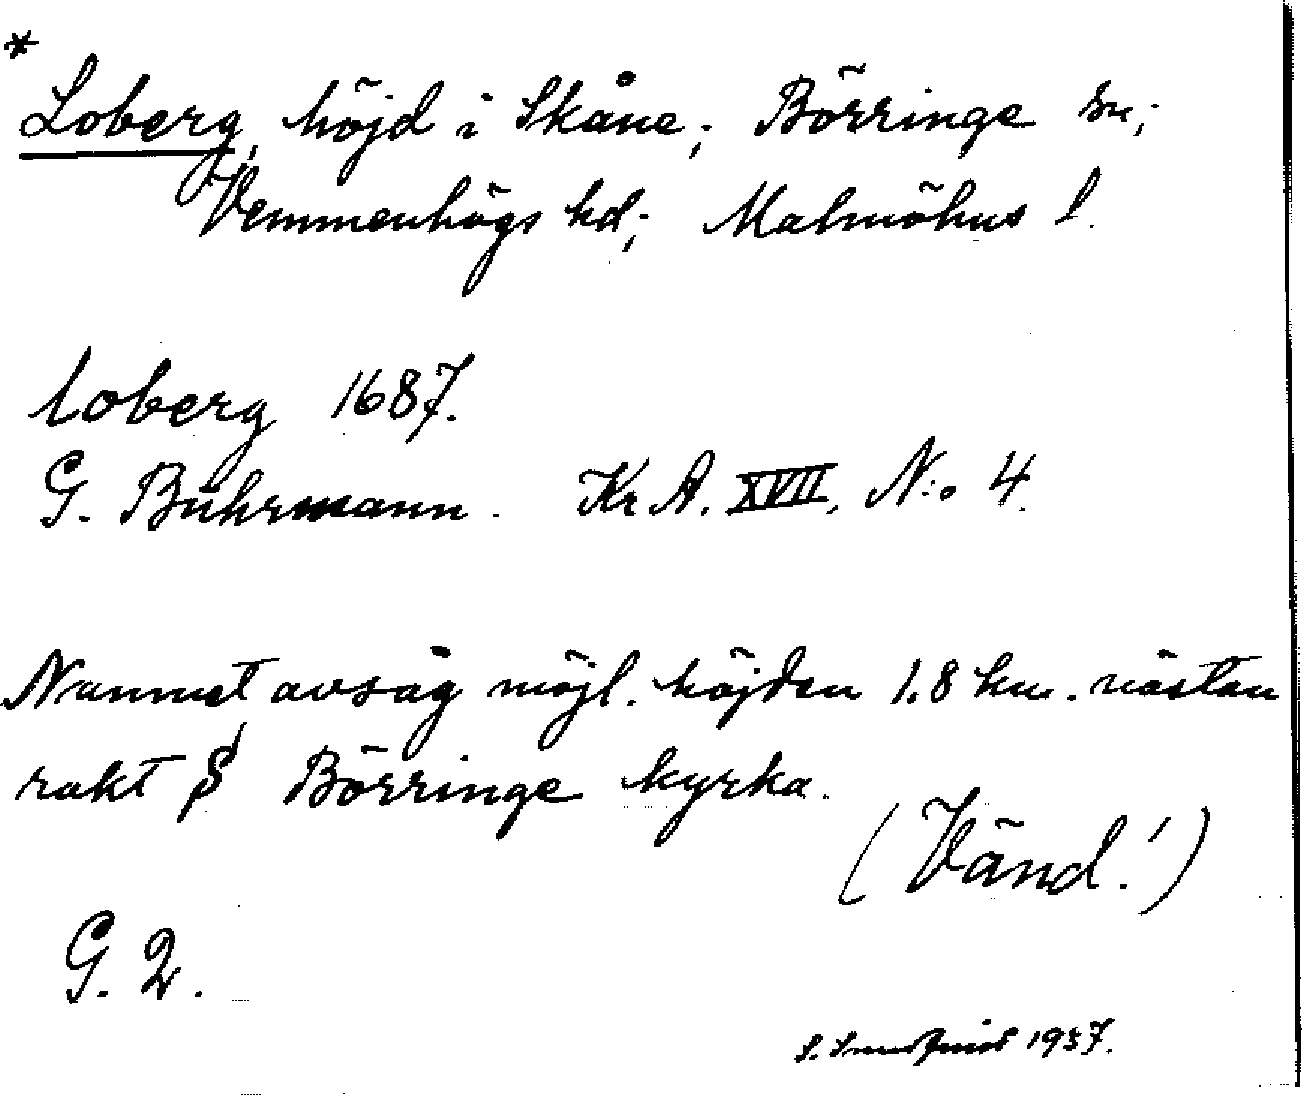 *
Loberg, höjd i Skåne; Börringe sn;
Vemmenhögs hd; Malmöhus l.
Loberg 1687.
G. Buhrmann. Kr A. XVII, N:o 4.
Namnet avsåg möjl. höjden 1.8 km. nästan
rakt S Börringe kyrka.
(Vänd!)
G. 2.
S. 1937.